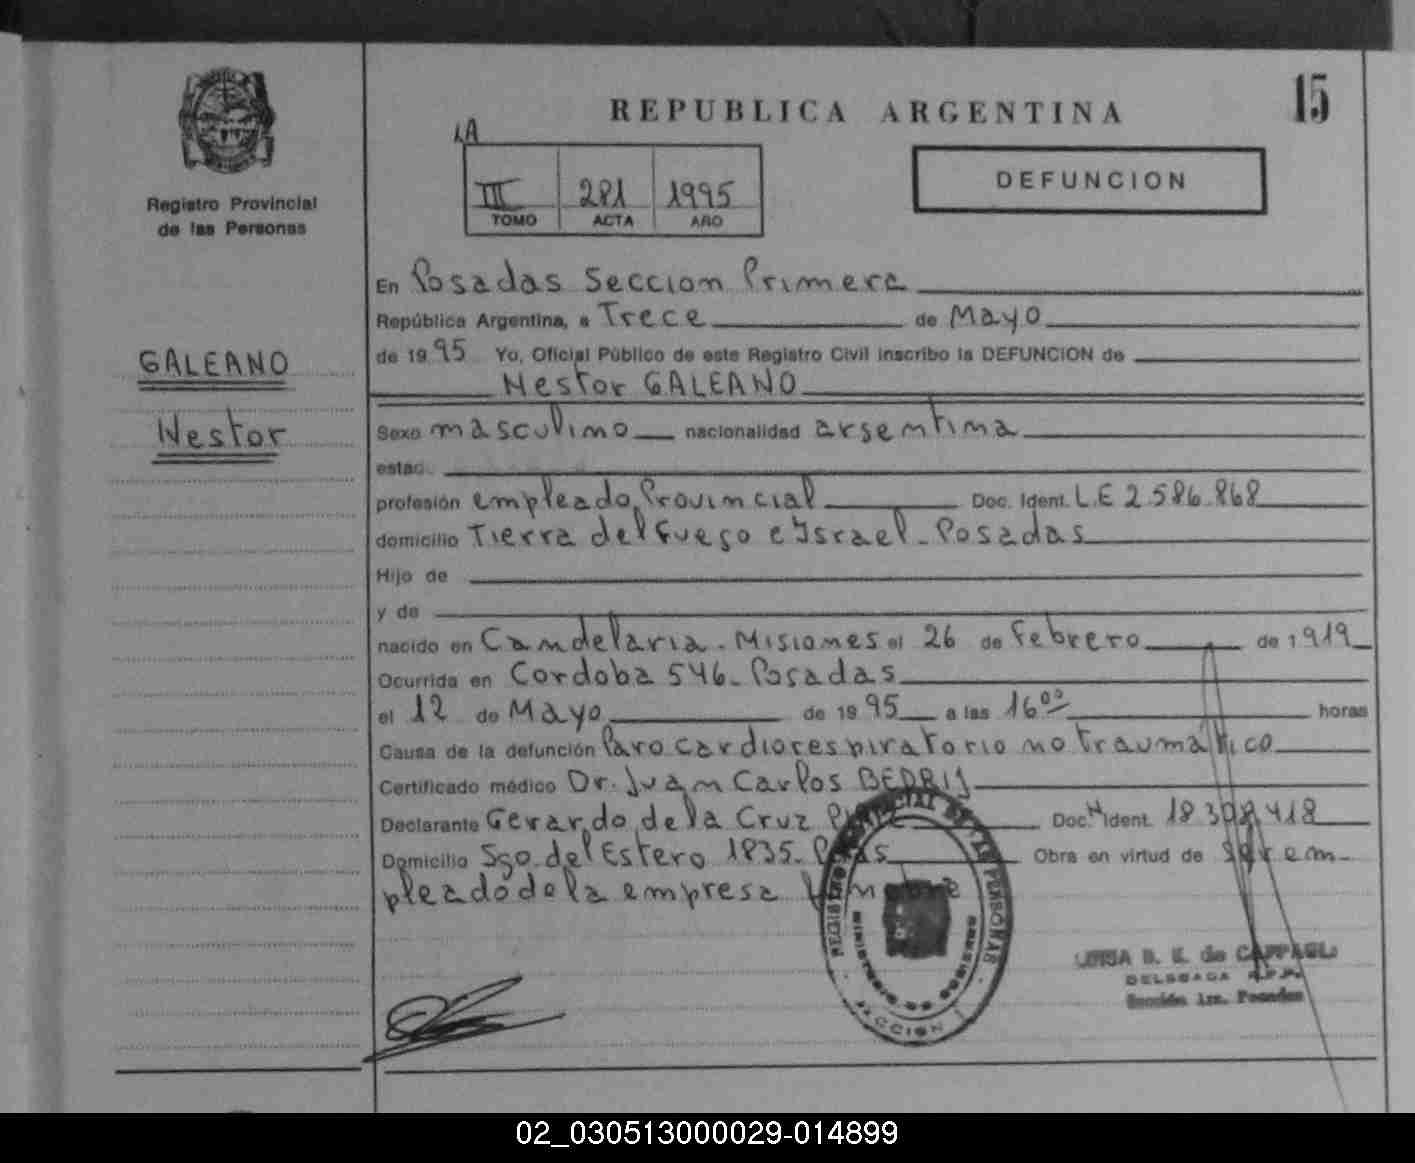 15
REPUBLICA ARGENTINA
LA
III 281 1995
TOMO ACTA AÑO
DEFUNCION
Registro Provincial
de las Personas
GALEANO
Nestor
En Posadas Seccion Primera
República Argentina, a Trece de Mayo
de 1995 Yo, Oficial Público de este Registro Civil inscribo la DEFUNCION de
Nestor GALEANO
Sexo masculino nacionalidad argentina
estad
profesión empleado Provincial Doc. Ident. L.E 2.586.868
domicilio Tierra del Fuego e Israel - Posadas
Hijo de
y de
nacido en Candelaria - Misiones el 26 de Febrero de 1919
Ocurrida en Cordoba 546 - Posadas
el 12 de Mayo de 1995 a las 16⁰⁰ horas
Causa de la defunción Paro cardiorespiratorio no traumático
Certificado médico Dr. Juan Carlos BEDRIJ
Declarante Gerardo de la Cruz Doc. Ident. 18.308.418
Domicilio Sgo. del Estero 1835 - Pdas Obra en virtud de ser em-
pleado de la empresa
REGISTRO PROVINCIAL DE LAS PERSONAS
MINISTERIO DE GOBIERNO
SECCION 1
B. E. de CAPPAGLI
DELEGADA R.P.P.
Sección 1ra. Posadas
02_030513000029-014899